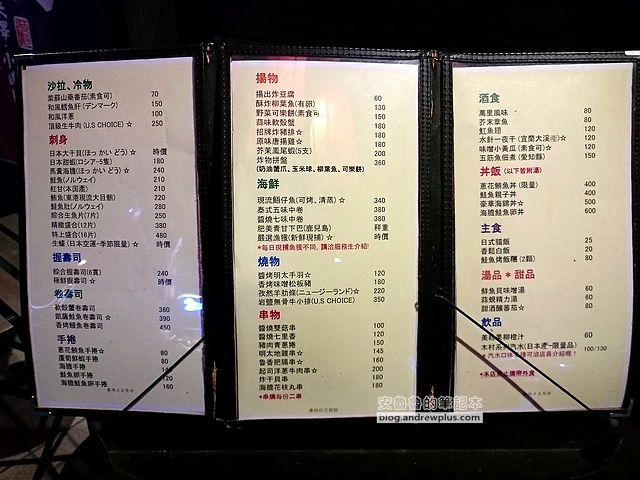 沙拉、冷物
紫蘇山藥番茄(素食可) 70
和風鱈魚肝 (デンマーク) 150
和風洋蔥 100
頂級生牛肉 (U.S CHOICE) ☆ 250
刺身
日本大干貝(ほっかいどう) ☆ 時價
日本甜蝦(ロシア-5隻) 180
馬糞海膽(ほっかいどう) ☆ 240
鮭魚(ノルウェイ) 210
紅甘(本国產) 210
鮪魚(東港現流大目鮪) 220
鮭魚肚(ノルウェイ) 280
綜合生魚片(7片) 250
精緻盛合(12片) 380
特上盛合(16片) 480
生蠔 (日本空運-季節限量) ☆ 時價
握壽司
綜合握壽司(6貫) 240
極鮮握壽司 ☆ 時價
卷壽司
軟殼蟹卷壽司 360
凱薩鮭魚卷壽司 ☆ 390
香烤鰻魚卷壽司 450
手捲
蔥花鮪魚手捲 ☆ 80
蘆筍鮮蝦手捲 80
海膽手捲
鮭魚卵手捲 120
海膽鮭魚卵手捲 160
揚物
揚出炸豆腐 60
酥炸柳葉魚(有卵) 130
野菜可樂餅(素食可)
蒜味軟殼蟹 180
招牌炸豬排 ☆ 180
原味唐揚雞 ☆ 180
芥茉鳳尾蝦(5支) 200
炸物拼盤 360
(奶油蟹爪、玉米球、柳葉魚、可樂餅)
海鮮
現流鮨仔魚(可烤、清蒸) ☆ 340
泰式五味中卷 380
醬燒七味中卷 380
肥美青甘下巴(鹿兒島) 秤重
嚴選漁獲(新鮮現捕) ☆ 時價
*每日現捕魚獲不同,請洽服務生介紹!
燒物
醬烤明太手羽 ☆ 120
香烤味噌松板豬 180
孜然羊肋條(ニュージーランド) ☆ 220
岩鹽無骨牛小排(U.S CHOICE) 350
串物
醬燒雙菇串 100
醬燒七里香 120
豬肉青蔥捲 150
明太地雞串 ☆ 145
蒼蒼肥腸串 ☆ 160
起司洋蔥牛肉串 ☆ 200
炸干貝串 180
海膽花枝丸串 180
*串燒每份二串
酒食
萬里風味 80
芥末章魚 80
魟魚翅 120
水針一夜干 (宜蘭大溪港) ☆ 120
味噌小黃瓜 (素食可) ☆ 120
五筋魚佃煮 (愛知縣) 150
丼飯 (以下皆附湯)
蔥花鮪魚丼 (限量) 400
鮭魚親子丼 400
豪華海鮮丼 ☆ 500
海膽鮭魚卵丼 600
主食
日式貓飯 25
香鬆白飯 20
鮭魚烤飯糰 (2顆) 80
湯品 * 甜品
鮮魚貝味噌湯 60
蒜蜆精力湯 60
甜酒釀番茄 ☆ 80
飲品
美粒果柳橙汁 60
木村系列汽水(日本產-限量品) 100/130
*本店禁止攜帶外食
安魯魯的筆記本
blog.andrewplus.com